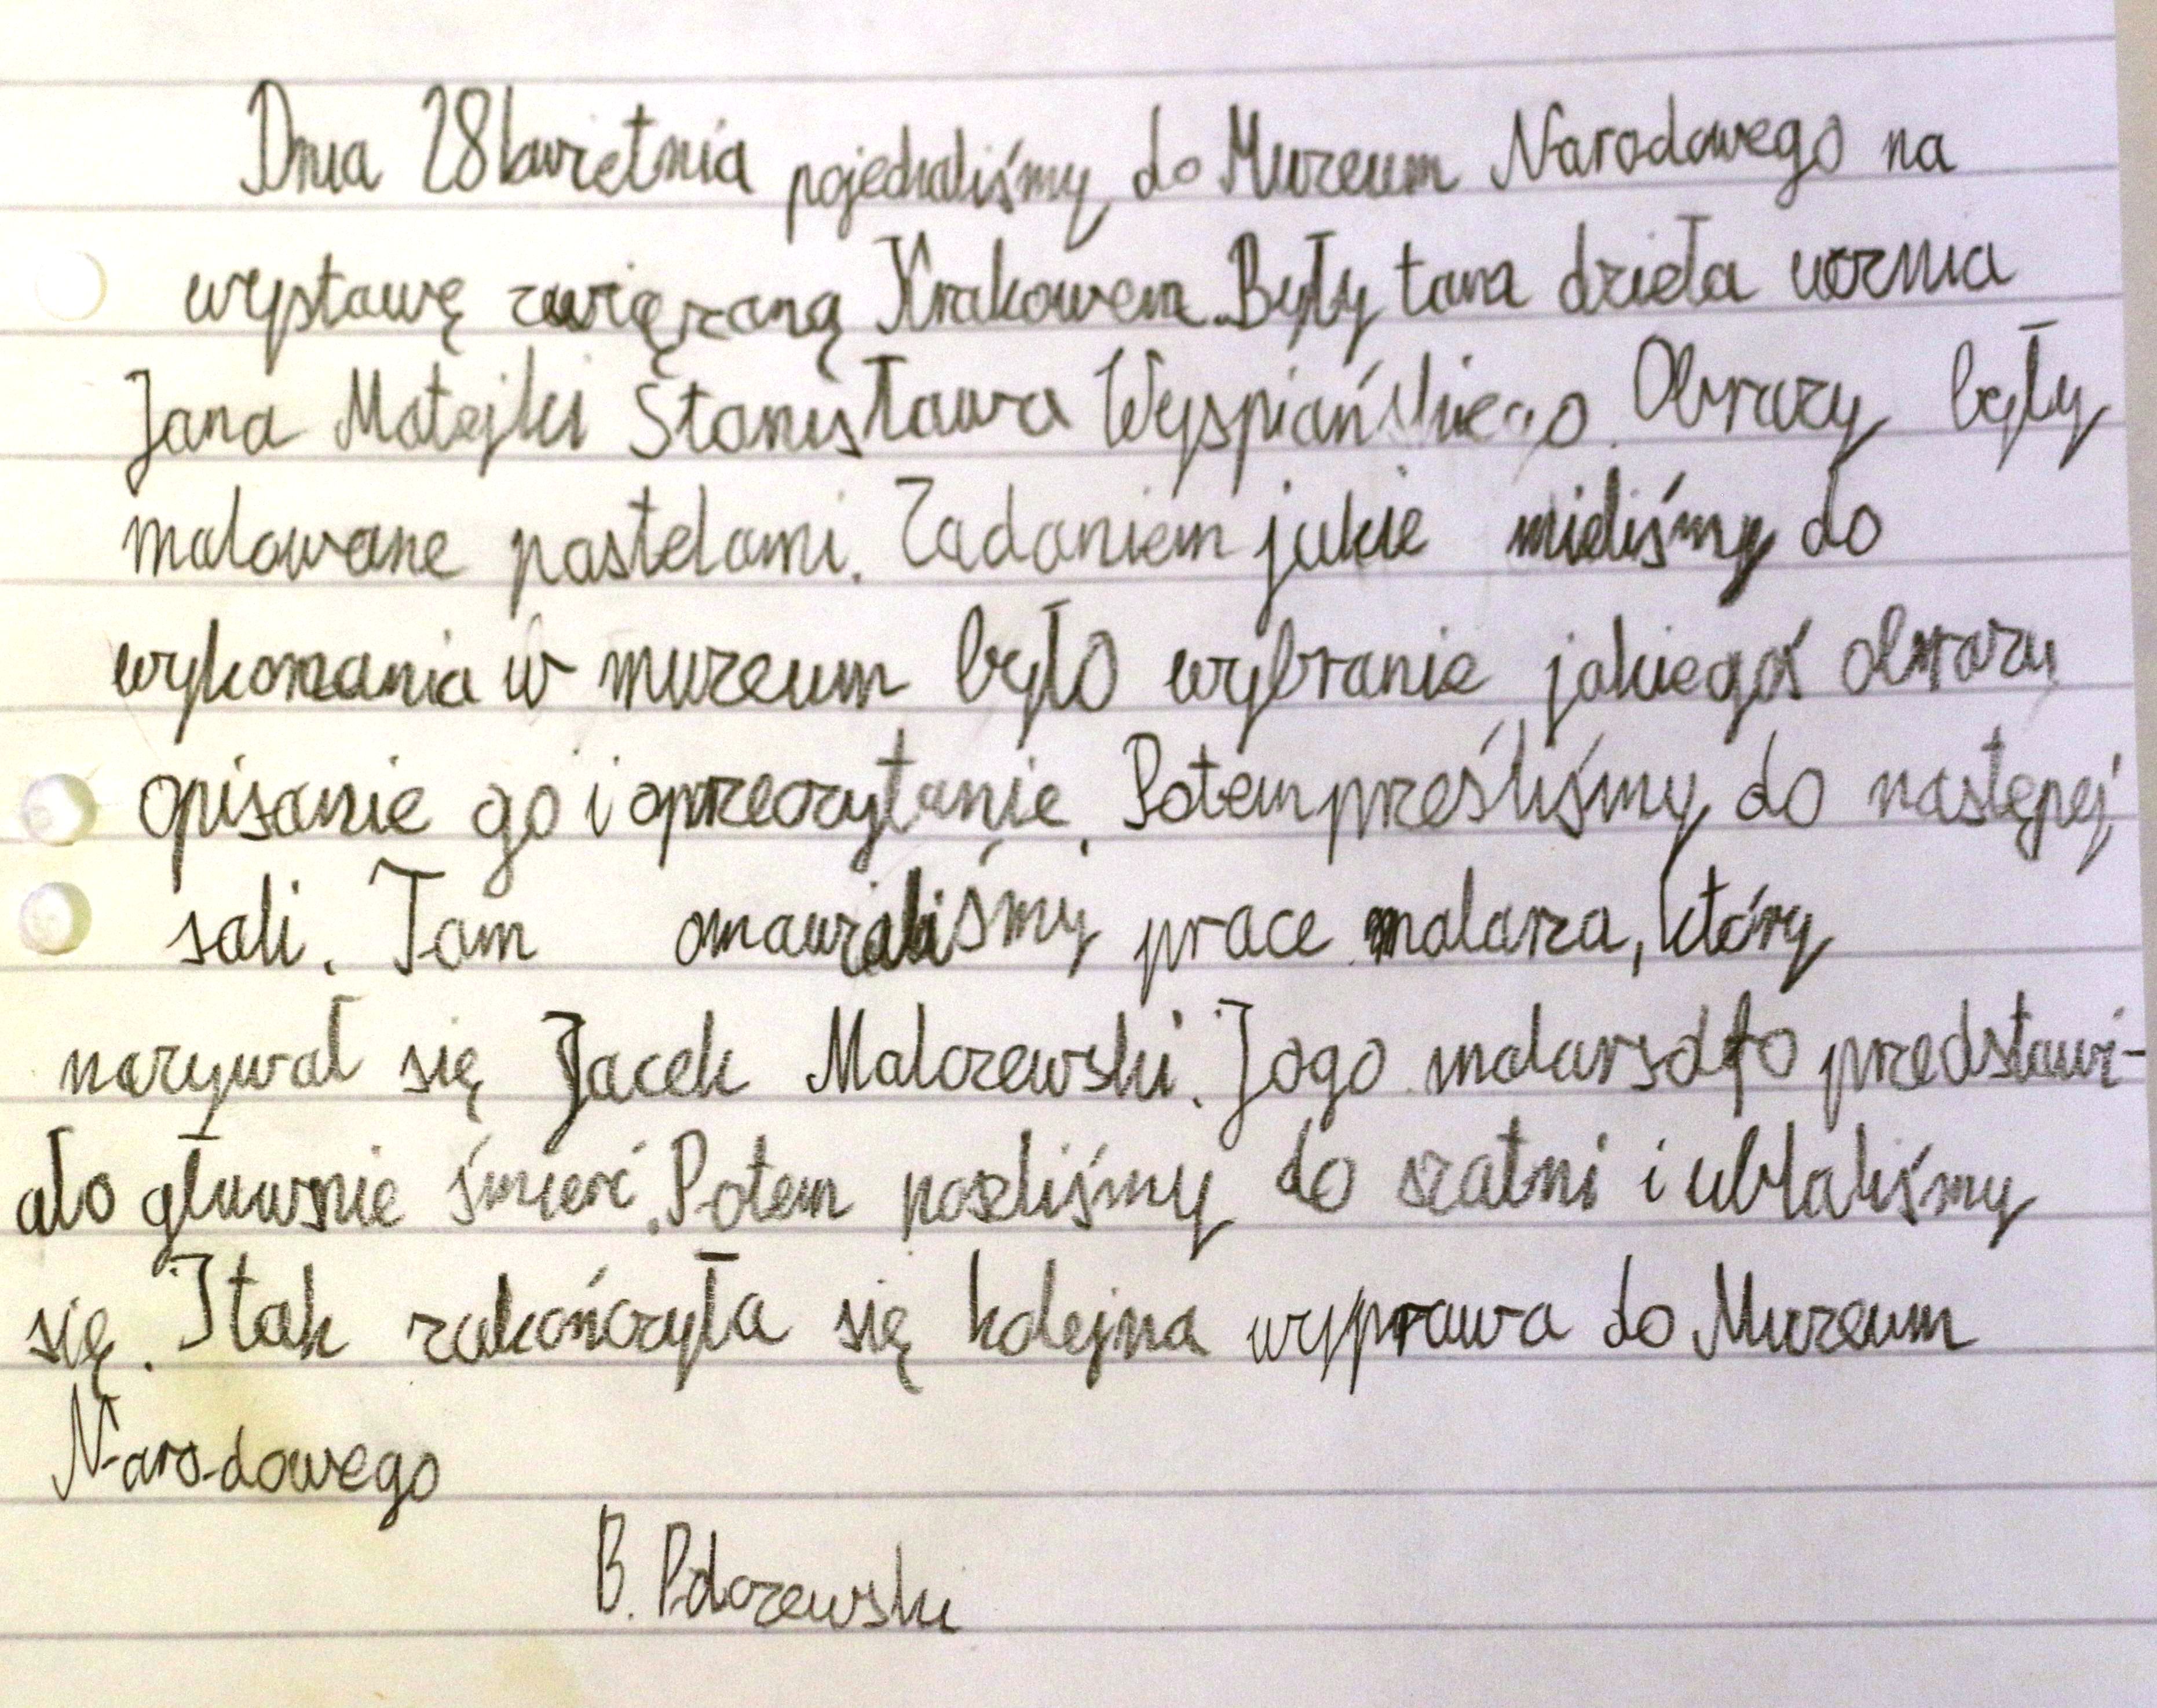 Dnia 28 kwietnia pojechaliśmy do Muzeum Narodowego na
wystawę związaną Krakowem. Były tam dzieła ucznia
Jana Matejki Stanisława Wyspiańskiego. Obrazy były
malowane pastelami. Zadaniem jakie mieliśmy do
wykonania w muzeum było wybranie jakiegoś obrazu
opisanie go i oprzeczytanie. Potem prześliśmy do następej
sali. Tam omawialiśmy prace malarza, który
nazywał się Jacek Malczewski. Jego malarsdło przedstawi-
ało głuwnie śmierć. Potem poszliśmy do szatni i ubraliśmy
się. I tak zakończyła się kolejna wyprawa do Muzeum
Narodowego
B.